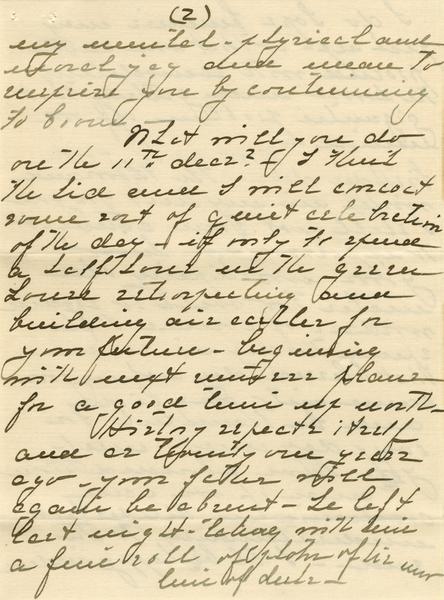 (2)
my mental - physical and
moral joy and mean to
surprise you by continuing
to bloom -
What will you do
on the 11th dear? - I think
the kid and I will concoct
some sort of quiet celebration
of the day - if only to spend
a half hour in the green
house retrospecting and
building air castles for
your future - beginning
with next summer plans
for a good time up north -
History repeats itself
and as twenty one years
ago - your father will
again be absent - he left
last night - taking with him
a fine roll of photos of his new
line of